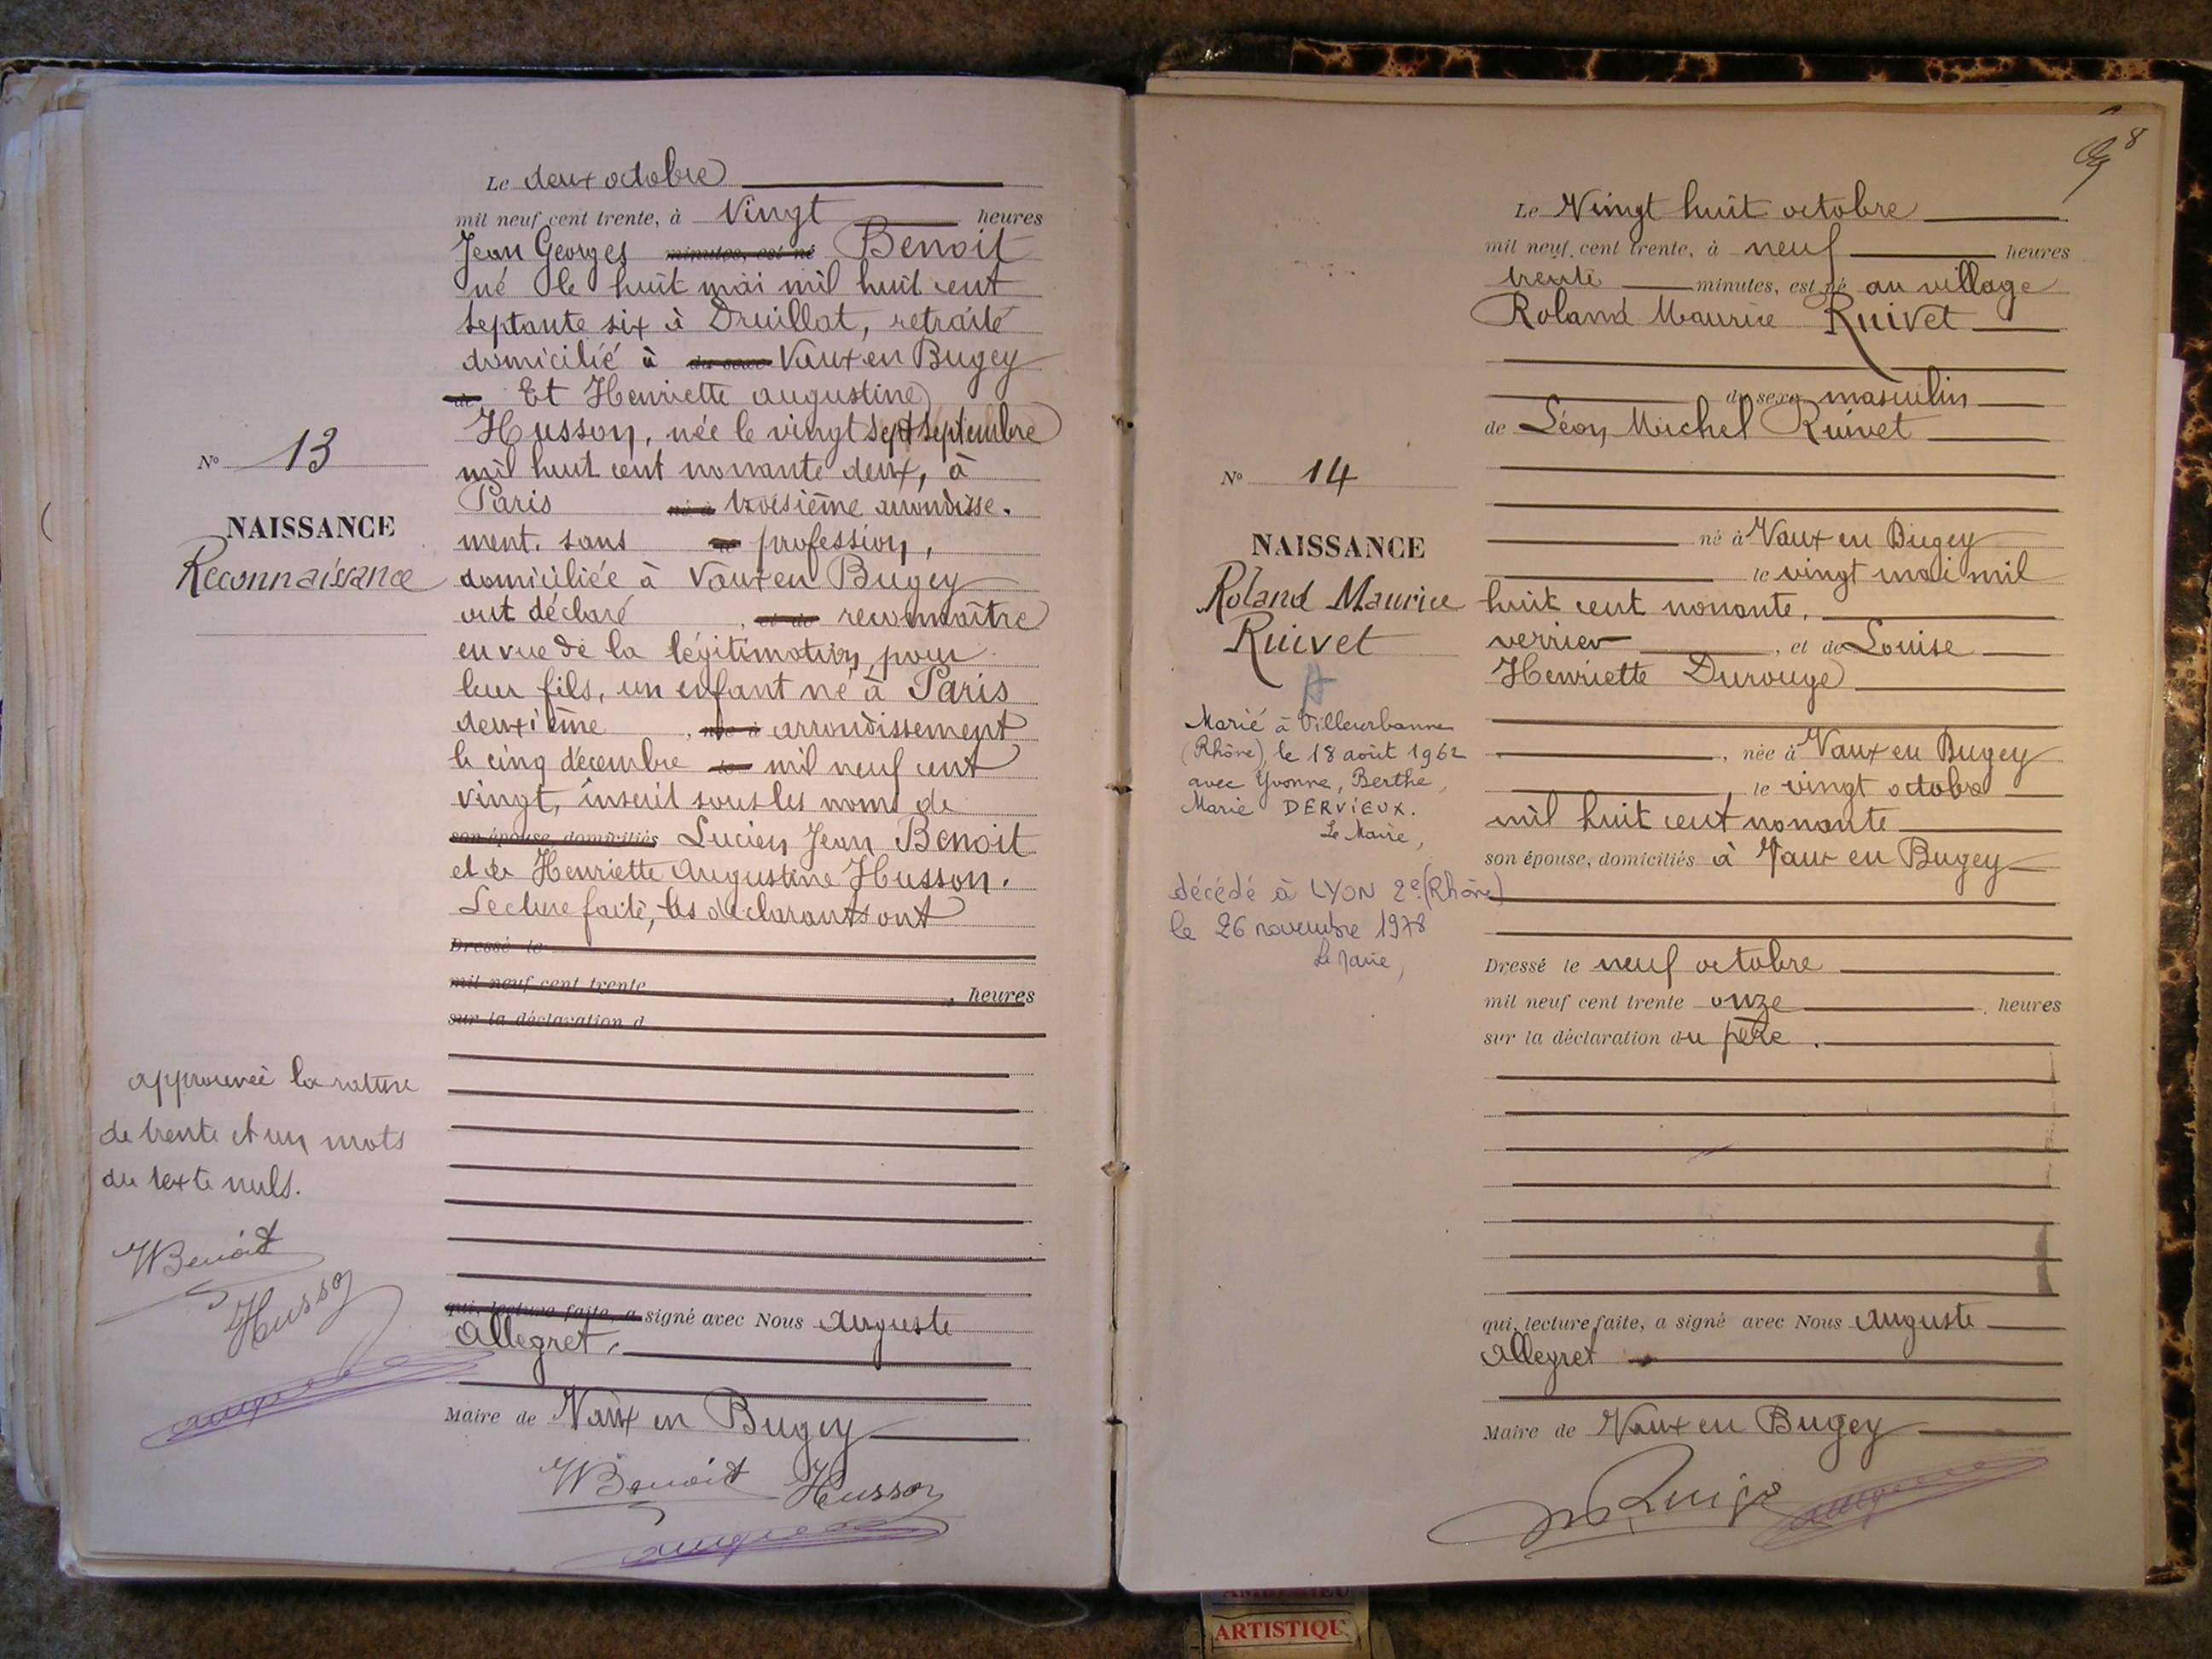 Le deux octobre
mil neuf cent trente, à Vingt heures
Jean Georges minutes, est né Benoit
né le huit mai mil huit cent
septante six à Druillat, retraité
domicilié à du sexe Vaux en Bugey
de Et Henriette augustine
Husson, née le vingt sept septembre
mil huit cent nonante deux, à
Paris né à troisième arrondisse.
ment. sans le profession,
domiciliée à Vaux en Bugey
ont déclaré , et de reconnaître
en vue de la légitimation, pour
leur fils, un enfant né à Paris
deuxième , née à arrondissement
le cinq décembre le mil neuf cent
vingt, inscrit sous les noms de
son épouse, domiciliés Lucien Jean Benoit
et de Henriette Augustine Husson.
Lecture faite, les déclarants ont
Dressé le
mil neuf cent trente , heures
sur la déclaration d
qui, lecture faite, a signé avec Nous Auguste
Allegret.
Maire de Vaux en Bugey
Benoit Husson
N° 13
NAISSANCE
Reconnaissance
approuvée la rature
de trente et un mots
du texte nuls.
Benoit
Husson
98
Le Vingt huit octobre
mil neuf cent trente, à neuf heures
trente minutes, est né au village
Roland Maurice Ruivet
du sexe masculin
de Léon Michel Ruivet
né à Vaux en Bugey
le vingt mai mil
huit cent nonante.
verrier , et de Louise
Henriette Durouge
, née à Vaux en Bugey
, le vingt octobre
mil huit cent nonante
son épouse, domiciliés à Vaux en Bugey
Dressé le neuf octobre
mil neuf cent trente onze heures
sur la déclaration du père.
qui, lecture faite, a signé avec Nous Auguste
Allegret
Maire de Vaux en Bugey
N° 14
NAISSANCE
Roland Maurice
Ruivet
Marié à Villeurbanne
(Rhône), le 18 août 1962
avec Yvonne, Berthe,
Marie DERVIEUX.
Le Maire,
décédé à LYON 2e (Rhône)
le 26 novembre 1978
Le Maire,
ARTISTIQU